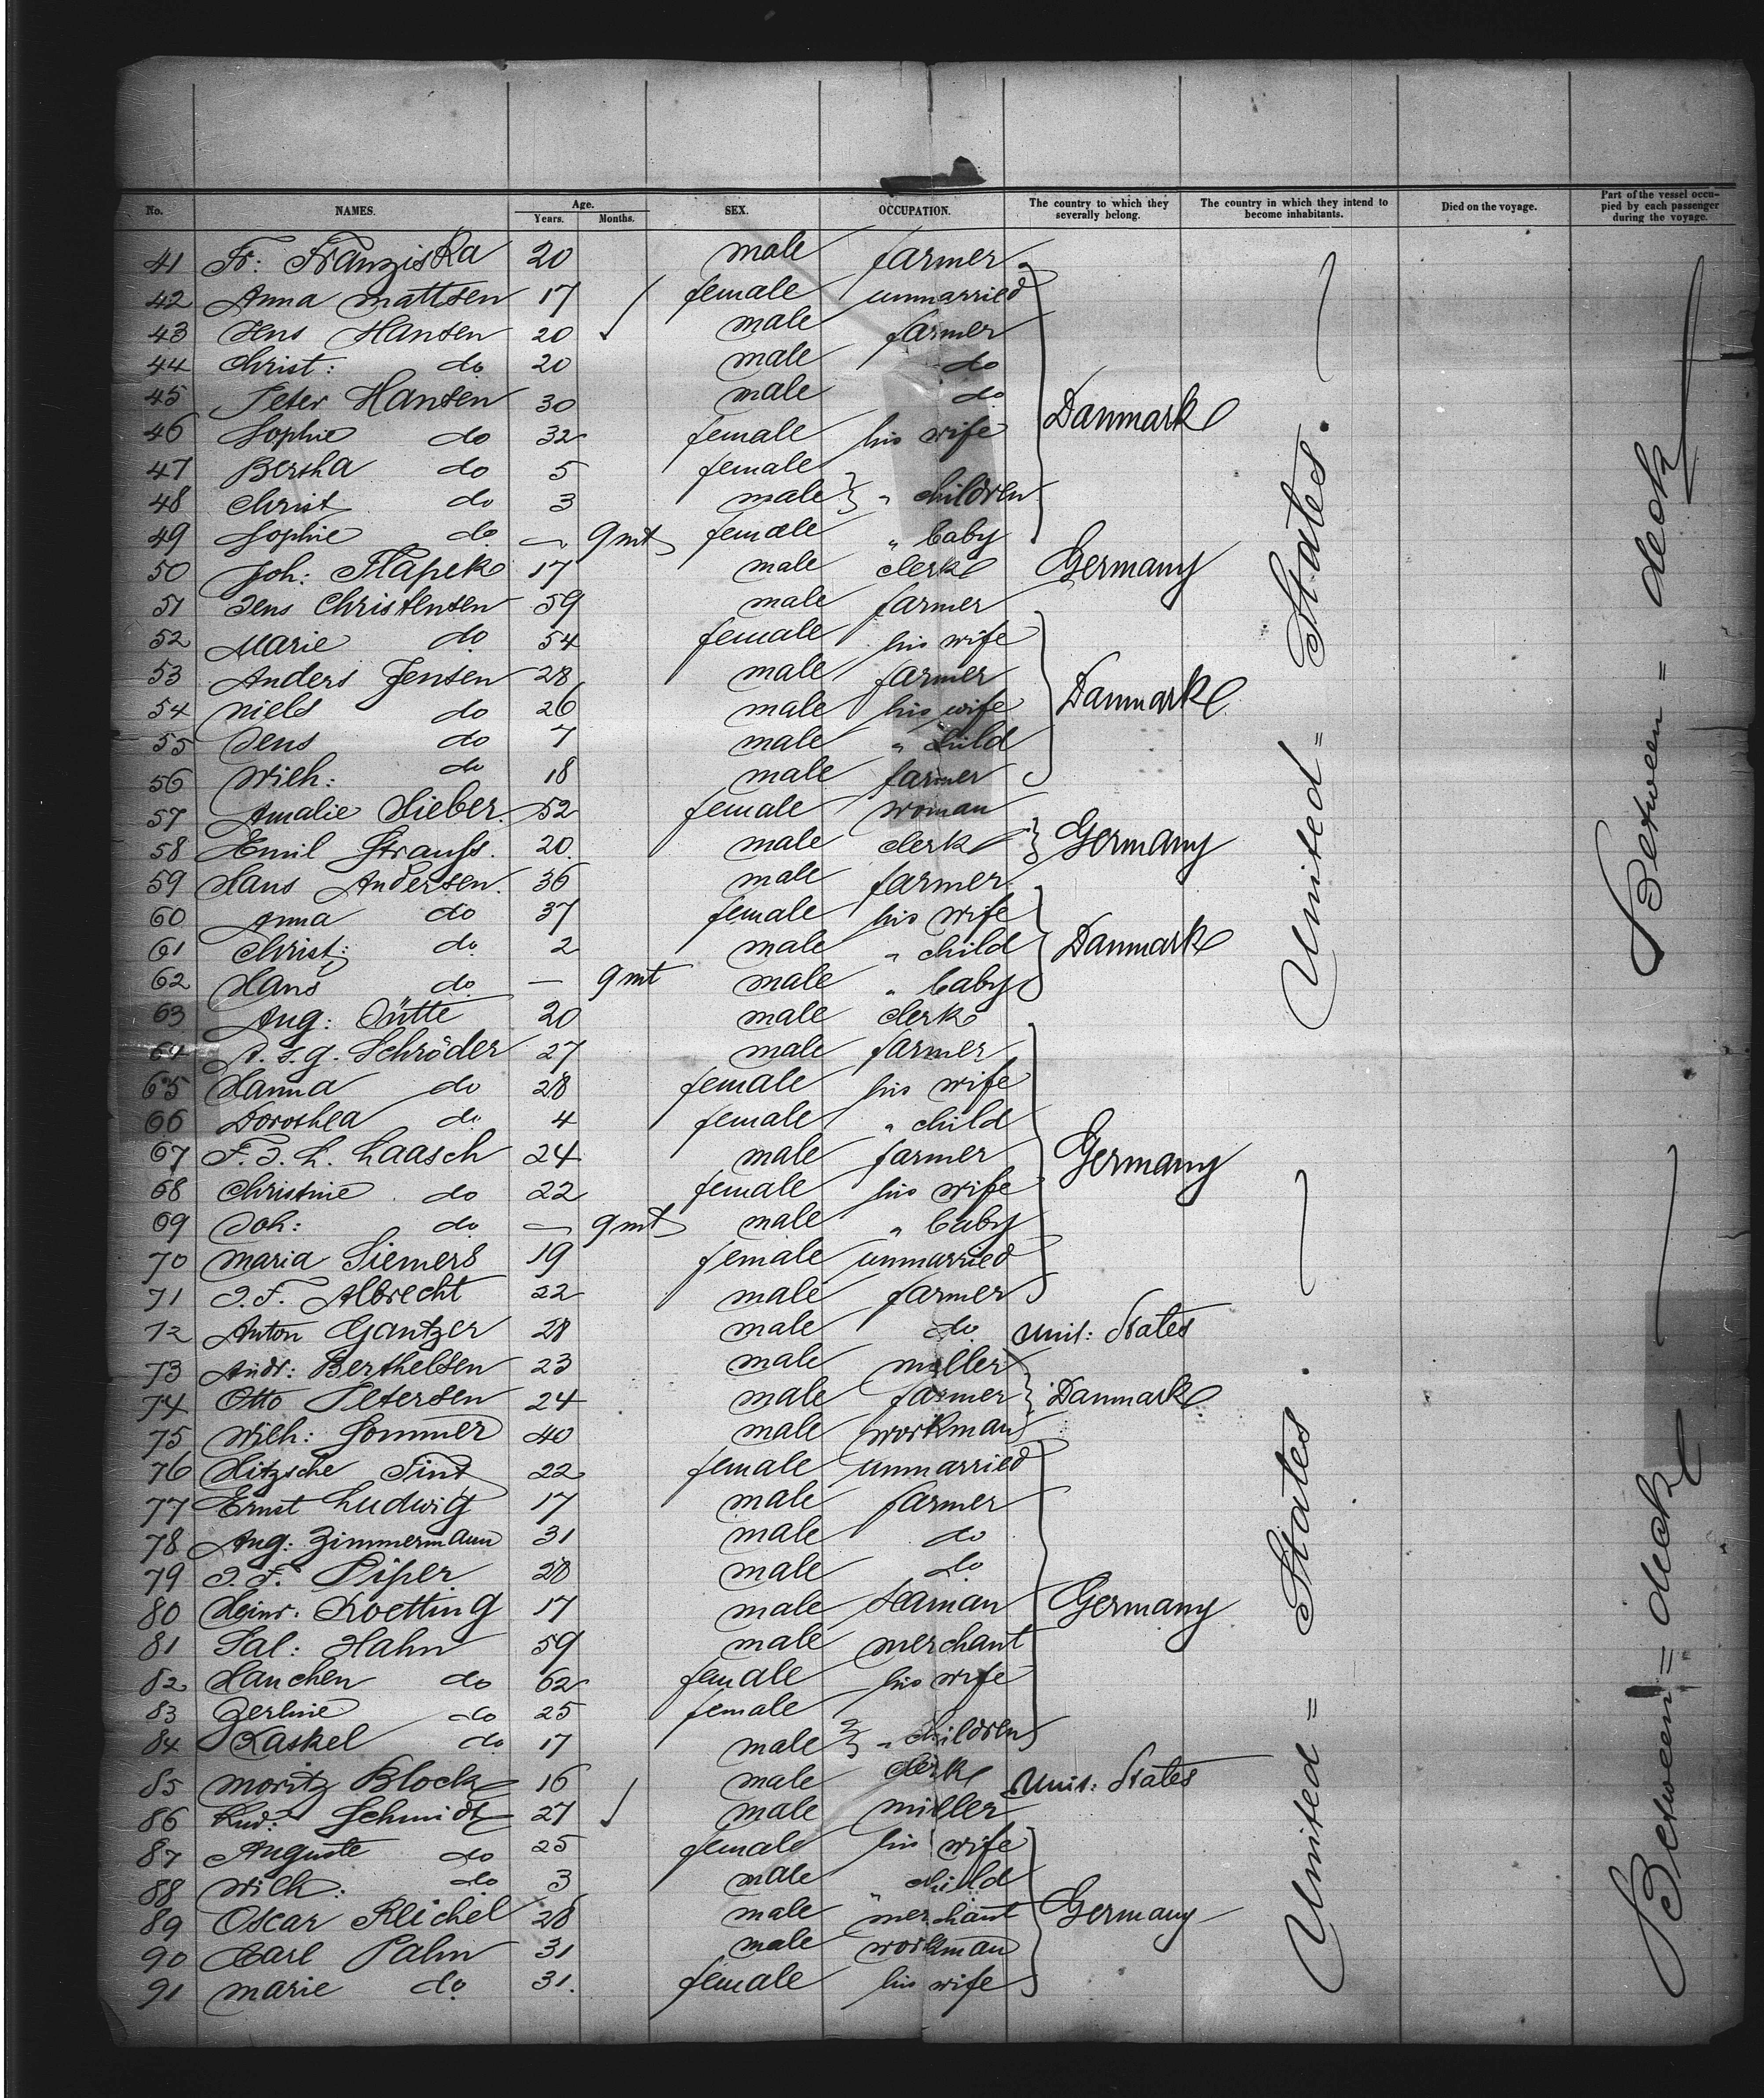 No. NAMES. Age. Years. Months. SEX. OCCUPATION. The country to which they severally belong. The country in which they intend to become inhabitants. Died on the voyage. Part of the vessel occupied by each passenger during the voyage.
41 Fr: Franziska 20 male farmer
42 Anna Mattsen 17 female unmarried
43 Jens Hansen 20 male farmer
44 Christ: do 20 male do
45 Peter Hansen 30 male do Danmark
46 Sophie do 32 female his wife
47 Bertha do 5 female
48 Christ do 3 male } " children
49 Sophie do — 9 mt female " baby
50 Joh: 17 male clerk Germany
51 Jens Christensen 59 male farmer
52 Marie do 54 female his wife
53 Anders Jensen 28 male farmer Danmark
54 Niels do 26 male his wife
55 Jens do 7 male " child
56 Wilh: do 18 male farmer
57 Amalie Sieber 52 female woman
58 Emil Strauss. 20. male clerk Germany
59 Hans Andersen. 36 male farmer
60 Anna do 37 female his wife
61 Christ: do 2 male " child Danmark
62 Hans do — 9 mt male " baby
63 Aug: 20 male clerk
64 Schröder 27 male farmer
65 Hanna do 28 female his wife
66 Dorothea do 4 female " child
67 F. J. H. Haasch 24 male farmer Germany
68 Christine do 22 female his wife
69 Joh: do — 9 mt male " baby
70 Maria Siemers 19 female unmarried
71 J. F. Albrecht 22 male farmer
72 Anton Gantzer 28 male do Unit: States
73 Andr: Berthelsen 23 male miller
74 Otto Petersen 24 male farmer Danmark
75 Wilh: Sommer 40 male workman
76 22 female unmarried
77 Ernst Ludwig 17 male farmer
78 Aug: Zimmermann 31 male do
79 J. F. Piper 28 male do
80 Heinr. Koetting 17 male seaman Germany
81 Sal: Hahn 59 male merchant
82 Hanchen do 62 female his wife
83 Zerline do 25 female
84 Kaskel do 17 male } " children
85 Moritz Block 16 male clerk Unit: States
86 Rud: Schmidt 27 male miller
87 Auguste do 25 female his wife
88 Wilh: do 3 male " child
89 Oscar Reichel 28 male merchant Germany
90 Carl Pahn 31 male workman
91 Marie do 31. female his wife
United = States.
United = States.
Between = deck
Between = deck